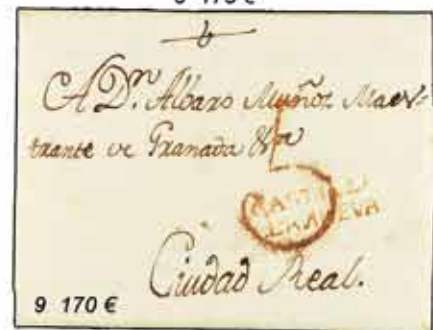 A D.n Albaro Muñoz Maes-
trante de Granada &c
CASTILLA
LA NUEVA
Ciudad Real.
9 170 €